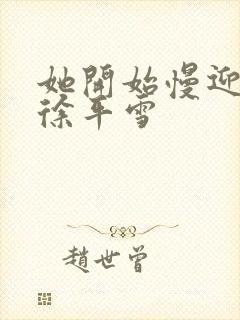 她開始慢迎
徐平雪
趙世曾